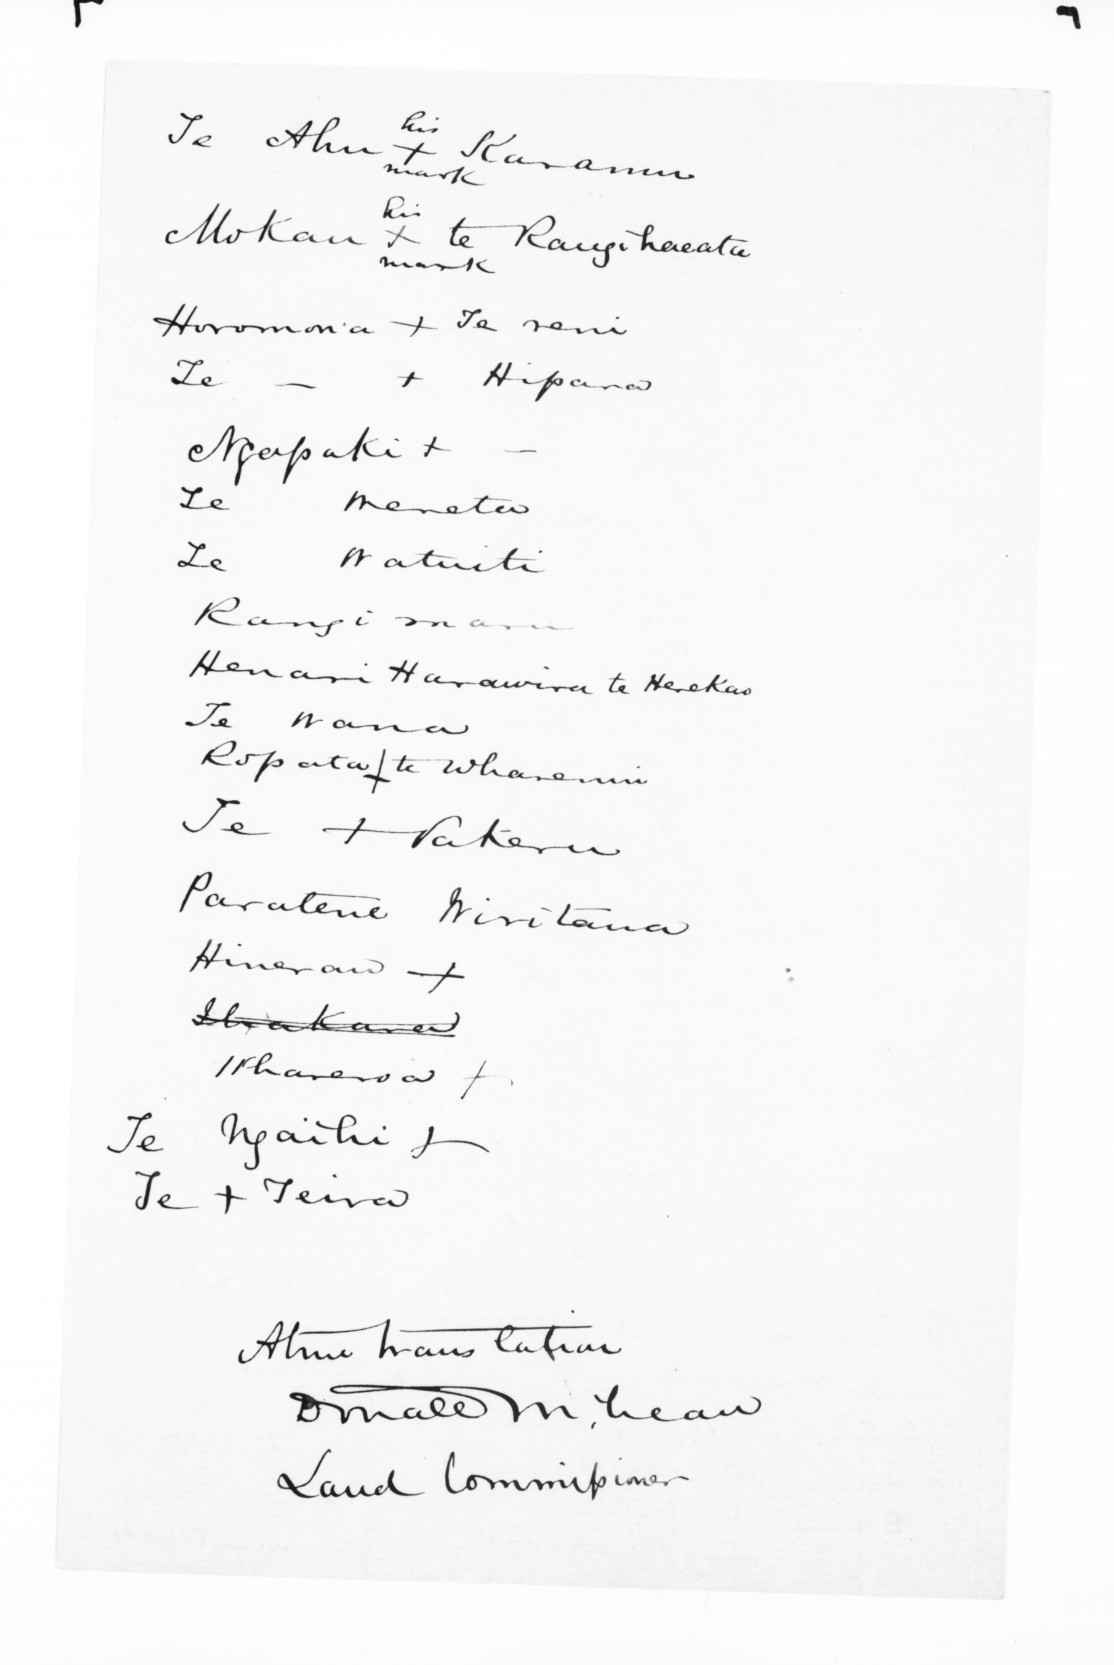 his
Te Ahu + Karamu
mark
his
Mokau + te Rangihaeata
mark
Horomona + Te reni
Te — + Hipara
Ngapaki + —
Te Meretu
Te Watuiti
Rangi maru
Henari Harawira te Herekau
Te Wana
Ropata + te Wharemui
Te + Pakeru
Paratene Wiritana
Hinerau +
Ihakara
Whareroa +
Te Ngaihi +
Te + Teira
A true translation
Donald McLean
Land Commissioner